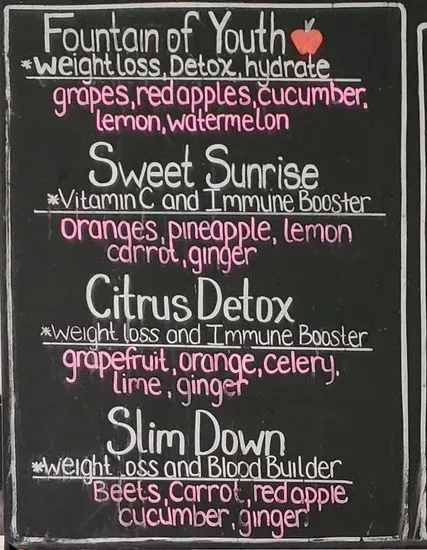 Fountain of Youth
*weight loss, Detox, hydrate
grapes, red apples, cucumber,
lemon, watermelon
Sweet Sunrise
*Vitamin C and Immune Booster
Oranges, pineapple, lemon
carrot, ginger
Citrus Detox
*weight loss and Immune Booster
grapefruit, orange, celery,
lime, ginger
Slim Down
*weight Loss and Blood Builder
Beets, Carrot, red apple
cucumber, ginger